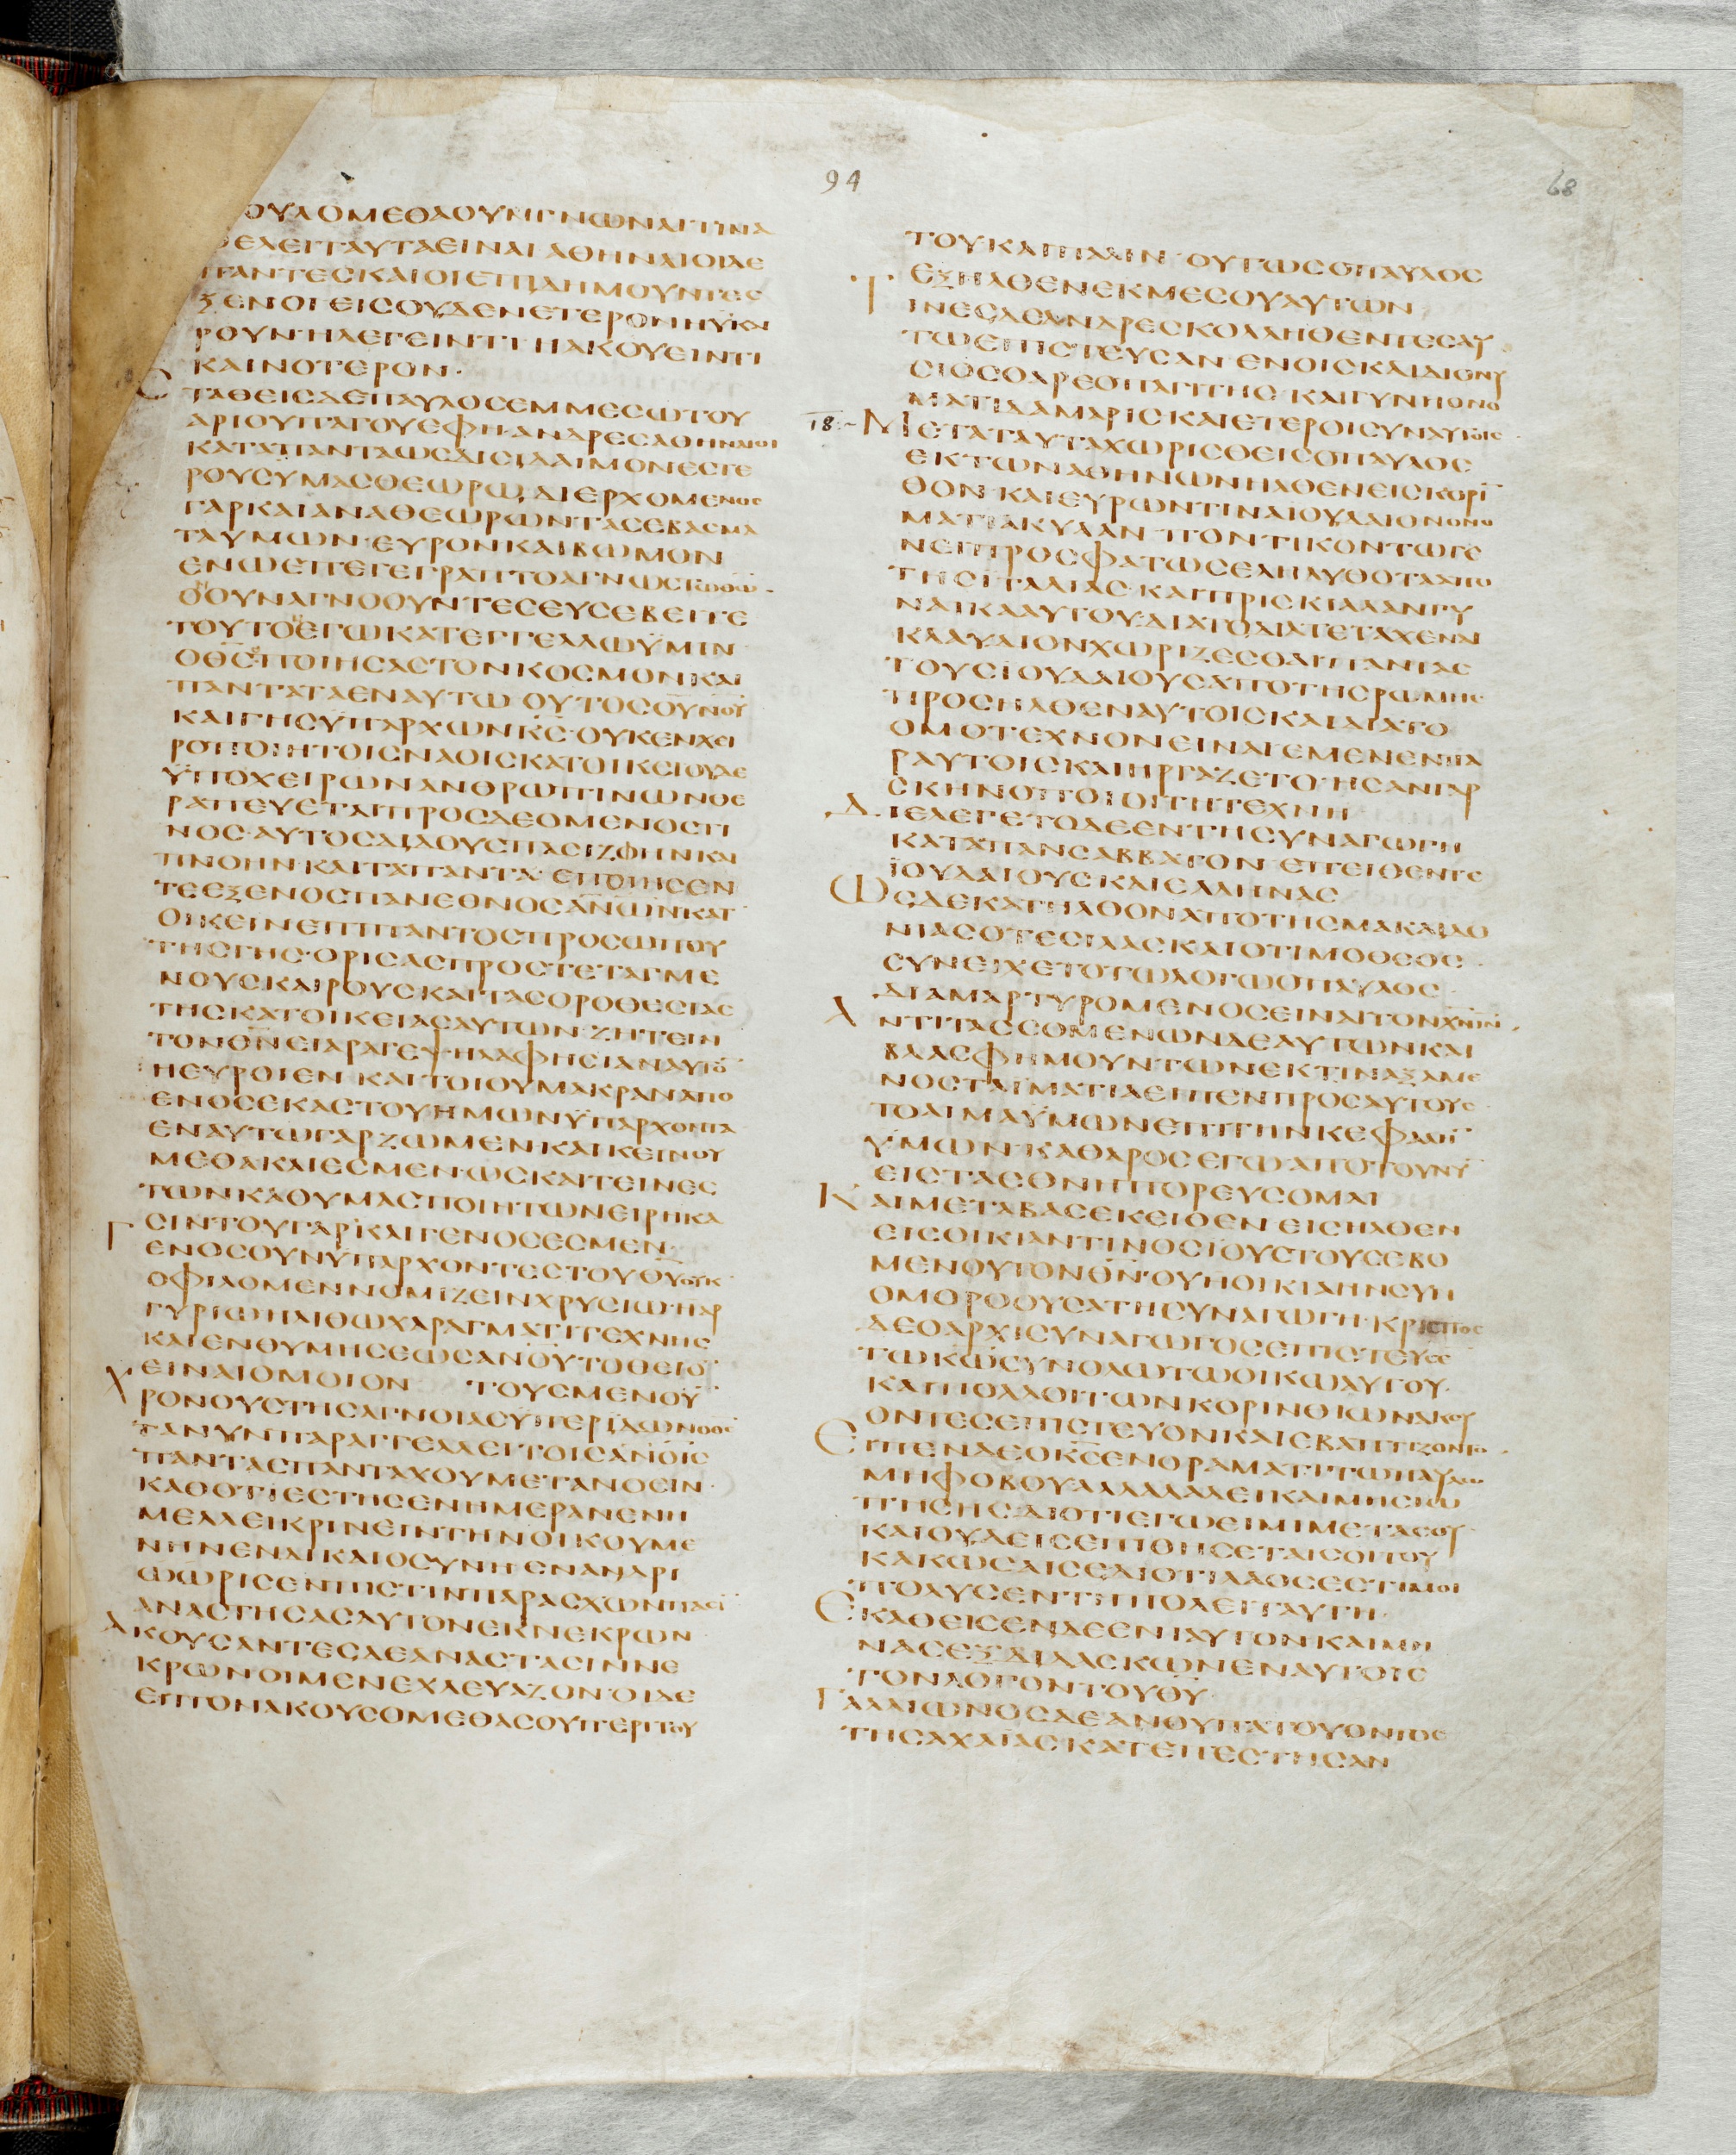 94
68
ΟΥΛΟΜΕΘΑΟΥΝΓΝΩΝΑΙΤΙΝΑ
ΕΛΕΙΤΑΥΤΑΕΙΝΑΙ ΑΘΗΝΑΙΟΙΔΕ
ΠΑΝΤΕΣΚΑΙΟΙΕΠΙΔΗΜΟΥΝΤΕΣ
ΞΕΝΟΙ ΕΙΣΟΥΔΕΝΕΤΕΡΟΝΗΥΚΑΙ
ΡΟΥΝ·ΗΛΕΓΕΙΝΤΙ·ΗΑΚΟΥΕΙΝΤΙ
ΚΑΙΝΟΤΕΡΟΝ·
ΣΤΑΘΕΙΣΔΕΠΑΥΛΟΣΕΜΜΕΣΩΤΟΥ
ΑΡΙΟΥΠΑΓΟΥΕΦΗ·ΑΝΔΡΕΣΑΘΗΝΑΙΟΙ
ΚΑΤΑΠΑΝΤΑΩΣΔΙΣΙΔΑΙΜΟΝΕΣΤΕ
ΡΟΥΣΥΜΑΣΘΕΩΡΩ, ΔΙΕΡΧΟΜΕΝΟΣ
ΓΑΡΚΑΙΑΝΑΘΕΩΡΩΝΤΑΣΕΒΑΣΜΑ
ΤΑΥΜΩΝ·ΕΥΡΟΝΚΑΙΒΩΜΟΝ
ΕΝΩΕΠΕΓΕΓΡΑΠΤΟΑΓΝΩΣΤΩΘΩ·
ΟΟΥΝΑΓΝΟΟΥΝΤΕΣΕΥΣΕΒΕΙΤΕ
ΤΟΥΤΟΕΓΩΚΑΤΕΓΓΕΛΛΩΥΜΙΝ
ΟΘΣΟΠΟΙΗΣΑΣΤΟΝΚΟΣΜΟΝΚΑΙ
ΠΑΝΤΑΤΑΕΝΑΥΤΩ ΟΥΤΟΣΟΥΝΟΥ
ΚΑΙΓΗΣΥΠΑΡΧΩΝΚΣ·ΟΥΚΕΝΧΕΙ
ΡΟΠΟΙΗΤΟΙΣΝΑΟΙΣΚΑΤΟΙΚΕΙΟΥΔΕ
ΥΠΟΧΕΙΡΩΝΑΝΘΡΩΠΙΝΩΝΘΕ
ΡΑΠΕΥΕΤΑΙΠΡΟΣΔΕΟΜΕΝΟΣΤΙ
ΝΟΣ·ΑΥΤΟΣΔΙΔΟΥΣΠΑΣΙΖΩΗΝΚΑΙ
ΠΝΟΗΝ·ΚΑΙΤΑΠΑΝΤΑ·ΕΠΟΙΗΣΕΝ
ΤΕΕΞΕΝΟΣΠΑΝΕΘΝΟΣΑΝΩΝΚΑΤ
ΟΙΚΕΙΝΕΠΙΠΑΝΤΟΣΠΡΟΣΩΠΟΥ
ΤΗΣΓΗΣ·ΟΡΙΣΑΣΠΡΟΣΤΕΤΑΓΜΕ
ΝΟΥΣΚΑΙΡΟΥΣΚΑΙΤΑΣΟΡΟΘΕΣΙΑΣ
ΤΗΣΚΑΤΟΙΚΕΙΑΣΑΥΤΩΝ·ΖΗΤΕΙΝ
ΤΟΝΘΝΕΙΑΡΑΓΕΨΗΛΑΦΗΣΙΑΝΑΥΤΟ
ΗΕΥΡΟΙΕΝ·ΚΑΙΤΟΙΟΥΜΑΚΡΑΝΑΠΟ
ΕΝΟΣΕΚΑΣΤΟΥΗΜΩΝΥΠΑΡΧΟΝΤΑ
ΕΝΑΥΤΩΓΑΡΖΩΜΕΝΚΑΙΚΕΙΝΟΥ
ΜΕΘΑΚΑΙΕΣΜΕΝ·ΩΣΚΑΙΤΕΙΝΕΣ
ΤΩΝΚΑΘΥΜΑΣΠΟΙΗΤΩΝΕΙΡΗΚΑ
ΣΙΝΤΟΥΓΑΡΚΑΙΓΕΝΟΣΕΣΜΕΝ
ΓΕΝΟΣΟΥΝΥΠΑΡΧΟΝΤΕΣΤΟΥΘΥΟΥΚ
ΟΦΙΛΟΜΕΝΝΟΜΙΖΕΙΝΧΡΥΣΙΩ·ΗΑΡ
ΓΥΡΙΩΗΛΙΘΩΧΑΡΑΓΜΑΤΙΤΕΧΝΗΣ
ΚΑΙΕΝΘΥΜΗΣΕΩΣΑΝΟΥΤΟΘΕΙΟ
ΕΙΝΑΙΟΜΟΙΟΝ ΤΟΥΣΜΕΝΟΥ
ΧΡΟΝΟΥΣΤΗΣΑΓΝΟΙΑΣΥΠΕΡΙΔΩΝΟΘΣ
ΤΑΝΥΝΠΑΡΑΓΓΕΛΛΕΙΤΟΙΣΑΝΟΙΣ
ΠΑΝΤΑΣΠΑΝΤΑΧΟΥΜΕΤΑΝΟΕΙΝ·
ΚΑΘΟΤΙΕΣΤΗΣΕΝΗΜΕΡΑΝΕΝΗ
ΜΕΛΛΕΙΚΡΙΝΕΙΝΤΗΝΟΙΚΟΥΜΕ
ΝΗΝΕΝΔΙΚΑΙΟΣΥΝΗΕΝΑΝΔΡΙ
ΩΩΡΙΣΕΝΠΙΣΤΙΝΠΑΡΑΣΧΩΝΠΑΣΙ
ΑΝΑΣΤΗΣΑΣΑΥΤΟΝΕΚΝΕΚΡΩΝ
ΑΚΟΥΣΑΝΤΕΣΔΕΑΝΑΣΤΑΣΙΝΝΕ
ΚΡΩΝ·ΟΙΜΕΝΕΧΛΕΥΑΖΟΝ·ΟΙΔΕ
ΕΙΠΟΝΑΚΟΥΣΟΜΕΘΑΣΟΥΠΕΡΙΤΟΥ
ΤΟΥΚΑΙΠΑΛΙΝ·ΟΥΤΩΣΟΠΑΥΛΟΣ
ΕΞΗΛΘΕΝΕΚΜΕΣΟΥΑΥΤΩΝ
ΤΙΝΕΣΔΕΑΝΔΡΕΣΚΟΛΛΗΘΕΝΤΕΣΑΥ
ΤΩΕΠΙΣΤΕΥΣΑΝ·ΕΝΟΙΣΚΑΙΔΙΟΝΥ
ΣΙΟΣΟΑΡΕΟΠΑΓΙΤΗΣ·ΚΑΙΓΥΝΗΟΝΟ
ΜΑΤΙΔΑΜΑΡΙΣΚΑΙΕΤΕΡΟΙΣΥΝΑΥΤΟΙΣ
18:~ ΜΕΤΑΤΑΥΤΑΧΩΡΙΣΘΕΙΣΟΠΑΥΛΟΣ
ΕΚΤΩΝΑΘΗΝΩΝΗΛΘΕΝΕΙΣΚΟΡΙ
ΘΟΝ·ΚΑΙΕΥΡΩΝΤΙΝΑΙΟΥΔΑΙΟΝΟΝΟ
ΜΑΤΙΑΚΥΛΑΝ·ΠΟΝΤΙΚΟΝΤΩΓΕ
ΝΕΙΠΡΟΣΦΑΤΩΣΕΛΗΛΥΘΟΤΑΑΠΟ
ΤΗΣΙΤΑΛΙΑΣ·ΚΑΙΠΡΙΣΚΙΛΛΑΝΓΥ
ΝΑΙΚΑΑΥΤΟΥΔΙΑΤΟΔΙΑΤΕΤΑΧΕΝΑΙ
ΚΛΑΥΔΙΟΝΧΩΡΙΖΕΣΘΑΙΠΑΝΤΑΣ
ΤΟΥΣΙΟΥΔΑΙΟΥΣΑΠΟΤΗΣΡΩΜΗΣ
ΠΡΟΣΗΛΘΕΝΑΥΤΟΙΣΚΑΙΔΙΑΤΟ
ΟΜΟΤΕΧΝΟΝΕΙΝΑΙΕΜΕΝΕΝΠΑ
ΡΑΥΤΟΙΣΚΑΙΗΡΓΑΖΕΤΟ·ΗΣΑΝΓΑΡ
ΣΚΗΝΟΠΟΙΟΙΤΗΤΕΧΝΗ
ΔΙΕΛΕΓΕΤΟΔΕΕΝΤΗΣΥΝΑΓΩΓΗ
ΚΑΤΑΠΑΝΣΑΒΒΑΤΟΝ ΕΠΕΙΘΕΝΤΕ
ΙΟΥΔΑΙΟΥΣΚΑΙΕΛΛΗΝΑΣ
ΩΣΔΕΚΑΤΗΛΘΟΝΑΠΟΤΗΣΜΑΚΑΙΔΟ
ΝΙΑΣΟΤΕΣΙΛΑΣΚΑΙΟΤΙΜΟΘΕΟΣ·
ΣΥΝΕΙΧΕΤΟΤΩΛΟΓΩΟΠΑΥΛΟΣ·
ΔΙΑΜΑΡΤΥΡΟΜΕΝΟΣΕΙΝΑΙΤΟΝΧΝΙΝ·
ΑΝΤΙΤΑΣΣΟΜΕΝΩΝΔΕΑΥΤΩΝΚΑΙ
ΒΛΑΣΦΗΜΟΥΝΤΩΝΕΚΤΙΝΑΞΑΜΕ
ΝΟΣΤΑΙΜΑΤΙΑΕΙΠΕΝΠΡΟΣΑΥΤΟΥΣ·
ΤΟΑΙΜΑΥΜΩΝΕΠΙΤΗΝΚΕΦΑΛΗ
ΥΜΩΝ·ΚΑΘΑΡΟΣΕΓΩΑΠΟΤΟΥΝΥ
ΕΙΣΤΑΕΘΝΗΠΟΡΕΥΣΟΜΑΙ
ΚΑΙΜΕΤΑΒΑΣΕΚΕΙΘΕΝ ΕΙΣΗΛΘΕΝ
ΕΙΣΟΙΚΙΑΝΤΙΝΟΣΙΟΥΣΤΟΥΣΕΒΟ
ΜΕΝΟΥΤΟΝΘΝ·ΟΥΗΟΙΚΙΑΗΝΣΥΝ
ΟΜΟΡΟΟΥΣΑΤΗΣΥΝΑΓΩΓΗ·ΚΡΙΣΠΟΣ
ΔΕΟΑΡΧΙΣΥΝΑΓΩΓΟΣΕΠΙΣΤΕΥΣΕ
ΤΩΚΩΣΥΝΟΛΩΤΩΟΙΚΩΑΥΤΟΥ·
ΚΑΙΠΟΛΛΟΙΤΩΝΚΟΡΙΝΘΙΩΝΑΚΟΥ
ΟΝΤΕΣΕΠΙΣΤΕΥΟΝΚΑΙΕΒΑΠΤΙΖΟΝΤΟ·
ΕΙΠΕΝΔΕΟΚΣΕΝΟΡΑΜΑΤΙΤΩΠΑΥΛΩ
ΜΗΦΟΒΟΥΑΛΛΑΛΑΛΕΙΚΑΙΜΗΣΙΩ
ΠΗΣΗΣΔΙΟΤΙΕΓΩΕΙΜΙΜΕΤΑΣΟΥ·
ΚΑΙΟΥΔΕΙΣΕΠΙΘΗΣΕΤΑΙΣΟΙΤΟΥ
ΚΑΚΩΣΑΙΣΕΔΙΟΤΙΛΑΟΣΕΣΤΙΜΟΙ
ΠΟΛΥΣΕΝΤΗΠΟΛΕΙΤΑΥΤΗ·
ΕΚΑΘΕΙΣΕΝΔΕΕΝΙΑΥΤΟΝΚΑΙΜΗ
ΝΑΣΕΞΔΙΔΑΣΚΩΝΕΝΑΥΤΟΙΣ
ΤΟΝΛΟΓΟΝΤΟΥΘΥ
ΓΑΛΛΙΩΝΟΣΔΕΑΝΘΥΠΑΤΟΥΟΝΤΟΣ
ΤΗΣΑΧΑΙΑΣΚΑΤΕΠΕΣΤΗΣΑΝ